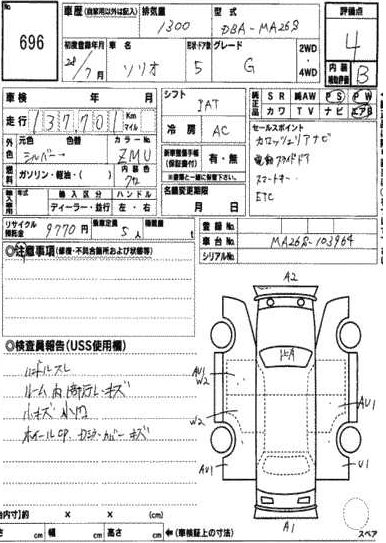 No.
696
車歴 (自家用以外は記入)
排気量
1300
型式
DBA-MA26S
初度登録年月
28/7月
車名
ソリオ
形状・ドア数
5
グレード
G
2WD
・
4WD
評価点
4
内装
補助評価
B
車検 年 月
走行 137,701 Km
マイル
シフト
IAT
冷房
AC
純正品
SR 純AW PS PW
カワ TV ナビ エアB
外色
元色
シルバー
色替
カラーNo.
ZMU
燃料
ガソリン・軽油・( )
内装色
輸入車
年式
輸入区分
ディーラー・並行
ハンドル
左・右
新車整備手帳
(保証書付)
有・無
名義変更期限
月 日
セールスポイント
カロッツェリアナビ
電動スライドドア
スマートキー
ETC
リサイクル
預託金
9770円
乗車定員
5人
積載量
t
登録No.
車台No.
MA26S-103964
シリアルNo.
◎注意事項 (修復・不具合箇所および状態等)
◎検査員報告(USS使用欄)
ハンドルスレ
ルーム内
キズ
小キズ
キズ
A2
AU1
W2
W2
AU1
AU1
U1
A1
スペア
内寸)約 × × (cm)
さ cm 幅 cm 高さ cm
←(車検証上の寸法)